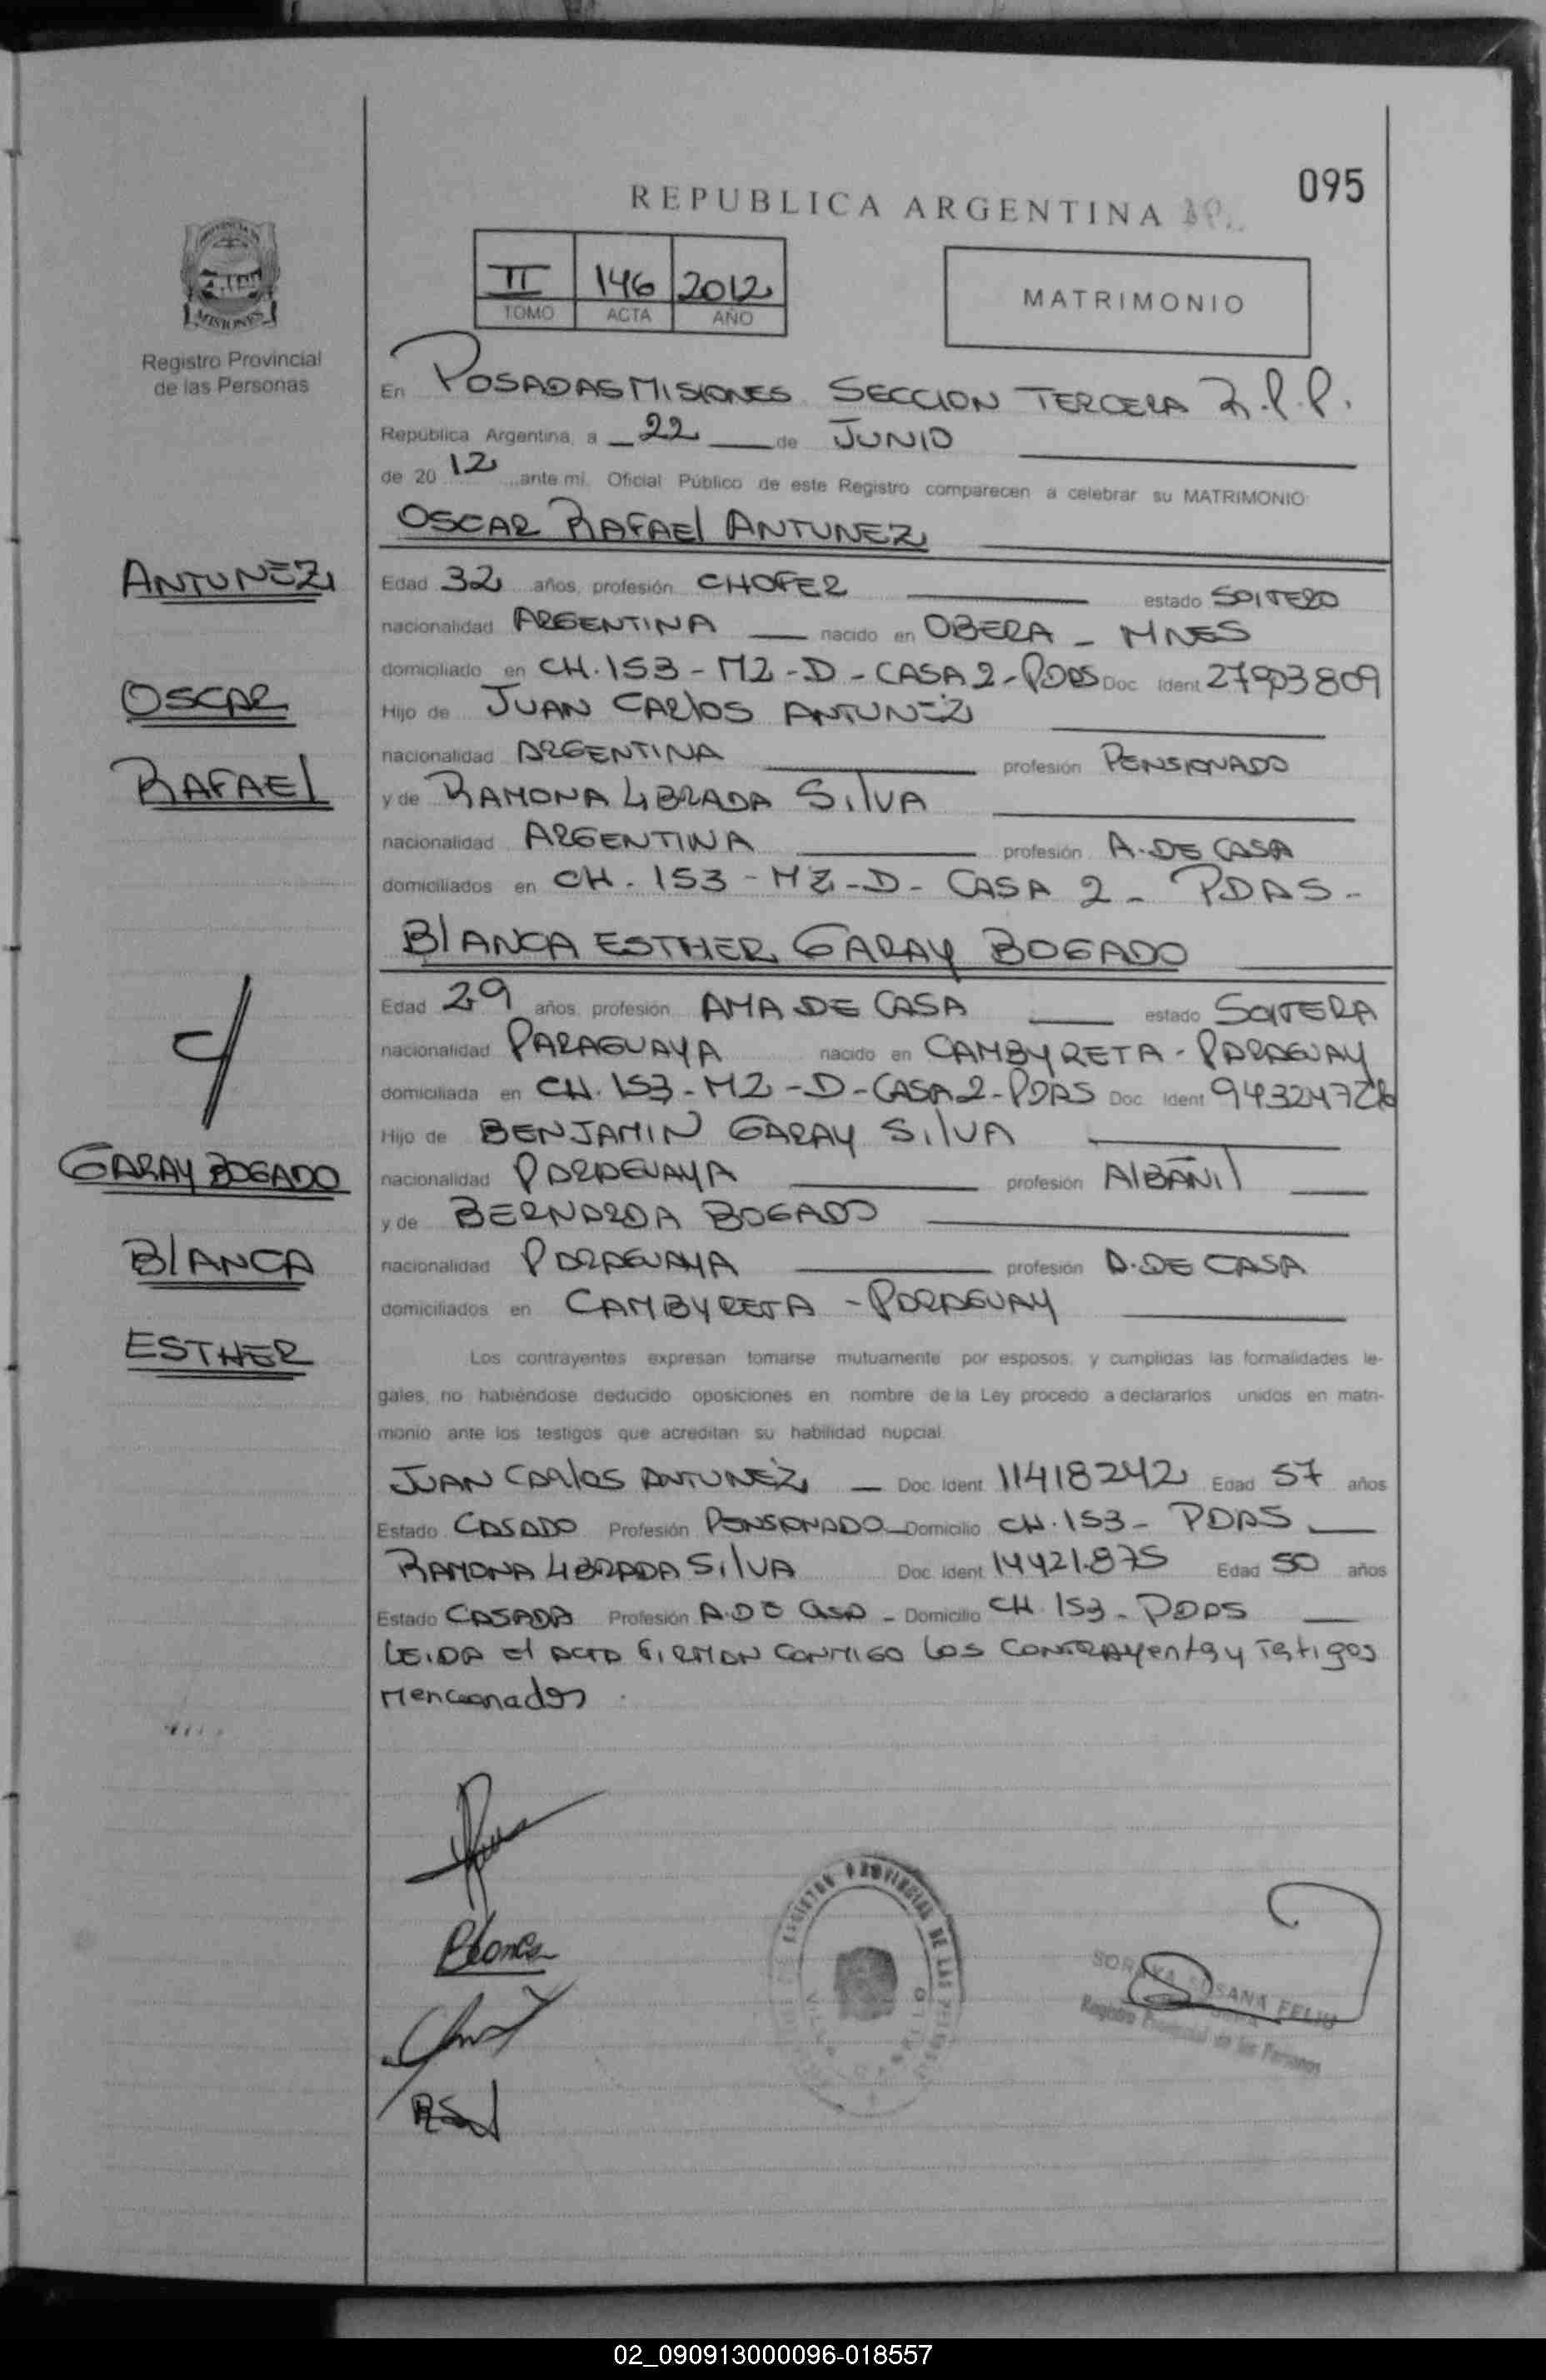 095
REPUBLICA ARGENTINA
II 146 2012
TOMO ACTA AÑO
MATRIMONIO
MISIONES
Registro Provincial
de las Personas
En POSADAS MISIONES SECCION TERCERA R.P.P.
República Argentina, a 22 de JUNIO
de 20 12 ante mi, Oficial Público de este Registro comparecen a celebrar su MATRIMONIO:
OSCAR RAFAEL ANTUNEZ
ANTUNEZ
OSCAR
RAFAEL
Edad 32 años, profesión CHOFER estado SOLTERO
nacionalidad ARGENTINA nacido en OBERA - MNES
domiciliado en CH. 153 - MZ - D - CASA 2 - PDAS Doc. Ident 27903809
Hijo de JUAN CARLOS ANTUNEZ
nacionalidad ARGENTINA profesión PENSIONADO
y de RAMONA LIBRADA SILVA
nacionalidad ARGENTINA profesión A. DE CASA
domiciliados en CH. 153 - MZ - D - CASA 2 - PDAS -
BLANCA ESTHER GARAY BOGADO
y
GARAY BOGADO
BLANCA
ESTHER
Edad 29 años, profesión AMA DE CASA estado SOLTERA
nacionalidad PARAGUAYA nacido en CAMBYRETA - PARAGUAY
domiciliada en CH. 153 - MZ - D - CASA 2 - PDAS Doc. Ident
Hijo de BENJAMIN GARAY SILVA
nacionalidad PARAGUAYA profesión ALBAÑIL
y de BERNARDA BOGADO
nacionalidad PARAGUAYA profesión A. DE CASA
domiciliados en CAMBYRETA - PARAGUAY
Los contrayentes expresan tomarse mutuamente por esposos, y cumplidas las formalidades le-
gales, no habiéndose deducido oposiciones en nombre de la Ley procedo a declararlos unidos en matri-
monio ante los testigos que acreditan su habilidad nupcial
JUAN CARLOS ANTUNEZ Doc. Ident 11418242 Edad 57 años
Estado CASADO Profesión PENSIONADO Domicilio CH. 153 - PDAS
RAMONA LIBRADA SILVA Doc. Ident 14421.875 Edad 50 años
Estado CASADA Profesión A. DE CASA - Domicilio CH. 153 - PDAS
LEIDA EL ACTA FIRMAN CONMIGO LOS CONTRAYENTES Y TESTIGOS
MENCIONADOS.
Blanca
REGISTRO PROVINCIAL DE LAS PERSONAS
SORAYA SUSANA FELIU
Registro Provincial de las Personas
02_090913000096-018557